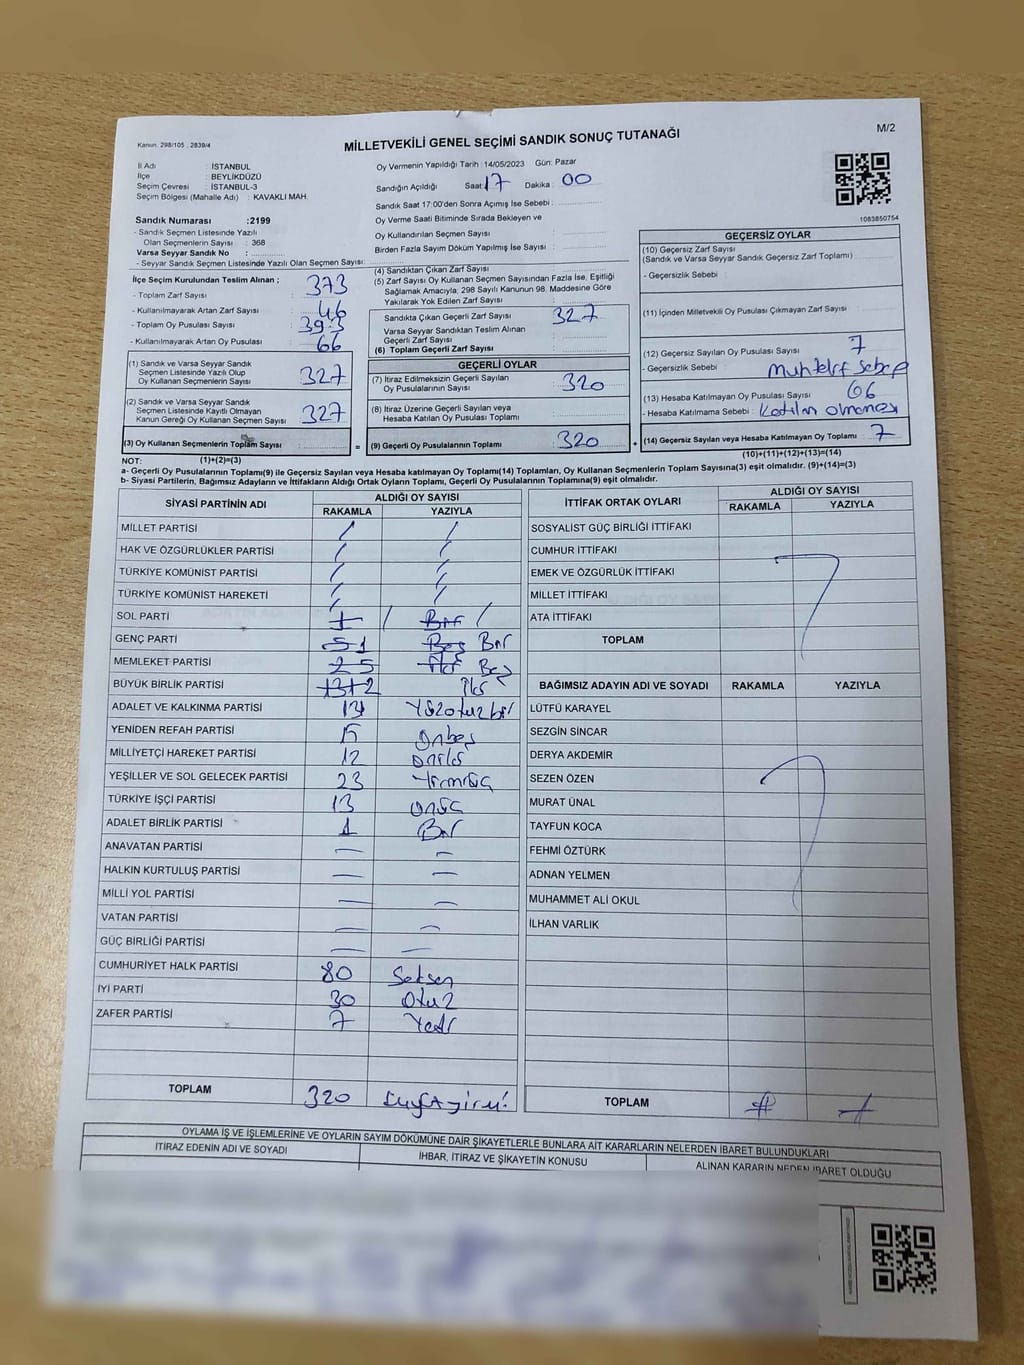 Kanun. 298/105 , 2839/4
MİLLETVEKİLİ GENEL SEÇİMİ SANDIK SONUÇ TUTANAĞI
M/2
İl Adı : İSTANBUL
İlçe : BEYLİKDÜZÜ
Seçim Çevresi : İSTANBUL-3
Seçim Bölgesi (Mahalle Adı) : KAVAKLI MAH.
Oy Vermenin Yapıldığı Tarih :14/05/2023 Gün: Pazar
Sandığın Açıldığı Saat: 17 Dakika : 00
Sandık Saat 17:00'den Sonra Açımış İse Sebebi :
Oy Verme Saati Bitiminde Sırada Bekleyen ve
Oy Kullandırılan Seçmen Sayısı :
Birden Fazla Sayım Döküm Yapılmış İse Sayısı :
1083850754
Sandık Numarası :2199
- Sandık Seçmen Listesinde Yazılı
Olan Seçmenlerin Sayısı : 368
Varsa Seyyar Sandık No :
- Seyyar Sandık Seçmen Listesinde Yazılı Olan Seçmen Sayısı:
İlçe Seçim Kurulundan Teslim Alınan ;
- Toplam Zarf Sayısı : 373
- Kullanılmayarak Artan Zarf Sayısı : 46
- Toplam Oy Pusulası Sayısı : 393
- Kullanılmayarak Artan Oy Pusulası : 66
(1) Sandık ve Varsa Seyyar Sandık
Seçmen Listesinde Yazılı Olup
Oy Kullanan Seçmenlerin Sayısı : 327
(2) Sandık ve Varsa Seyyar Sandık
Seçmen Listesinde Kayıtlı Olmayan
Kanun Gereği Oy Kullanan Seçmen Sayısı : 327
(3) Oy Kullanan Seçmenlerin Toplam Sayısı :
(4) Sandıktan Çıkan Zarf Sayısı :
(5) Zarf Sayısı Oy Kullanan Seçmen Sayısından Fazla İse, Eşitliği
Sağlamak Amacıyla, 298 Sayılı Kanunun 98. Maddesine Göre
Yakılarak Yok Edilen Zarf Sayısı :
Sandıkta Çıkan Geçerli Zarf Sayısı : 327
Varsa Seyyar Sandıktan Teslim Alınan
Geçerli Zarf Sayısı :
(6) Toplam Geçerli Zarf Sayısı :
GEÇERLİ OYLAR
(7) İtiraz Edilmeksizin Geçerli Sayılan
Oy Pusulalarının Sayısı : 320
(8) İtiraz Üzerine Geçerli Sayılan veya
Hesaba Katılan Oy Pusulası Toplamı :
= (9) Geçerli Oy Pusulalarının Toplamı : 320 +
GEÇERSİZ OYLAR
(10) Geçersiz Zarf Sayısı
(Sandık ve Varsa Seyyar Sandık Geçersiz Zarf Toplamı)
- Geçersizlik Sebebi :
(11) İçinden Milletvekili Oy Pusulası Çıkmayan Zarf Sayısı :
(12) Geçersiz Sayılan Oy Pusulası Sayısı : 7
- Geçersizlik Sebebi : Muhtelif Sebep
(13) Hesaba Katılmayan Oy Pusulası Sayısı : 66
- Hesaba Katılmama Sebebi : Katılım olmaması
(14) Geçersiz Sayılan veya Hesaba Katılmayan Oy Toplamı : 7
NOT: (1)+(2)=(3)
(10)+(11)+(12)+(13)=(14)
a- Geçerli Oy Pusulalarının Toplamı(9) ile Geçersiz Sayılan veya Hesaba katılmayan Oy Toplamı(14) Toplamları, Oy Kullanan Seçmenlerin Toplam Sayısına(3) eşit olmalıdır. (9)+(14)=(3)
b- Siyasi Partilerin, Bağımsız Adayların ve İttifakların Aldığı Ortak Oyların Toplamı, Geçerli Oy Pusulalarının Toplamına(9) eşit olmalıdır.
SİYASİ PARTİNİN ADI
ALDIĞI OY SAYISI
RAKAMLA YAZIYLA
MİLLET PARTİSİ / /
HAK VE ÖZGÜRLÜKLER PARTİSİ / /
TÜRKİYE KOMÜNİST PARTİSİ / /
TÜRKİYE KOMÜNİST HAREKETİ / /
SOL PARTİ 1 / Bir /
GENÇ PARTİ 5 1 Beş Bir
MEMLEKET PARTİSİ 2 5 İki Beş
BÜYÜK BİRLİK PARTİSİ 131 2 İki
ADALET VE KALKINMA PARTİSİ 131 Yüzotuzbir
YENİDEN REFAH PARTİSİ 15 Onbeş
MİLLİYETÇİ HAREKET PARTİSİ 12 Oniki
YEŞİLLER VE SOL GELECEK PARTİSİ 23 Yirmiüç
TÜRKİYE İŞÇİ PARTİSİ 13 Onüç
ADALET BİRLİK PARTİSİ 1 Bir
ANAVATAN PARTİSİ — —
HALKIN KURTULUŞ PARTİSİ — —
MİLLİ YOL PARTİSİ — —
VATAN PARTİSİ — —
GÜÇ BİRLİĞİ PARTİSİ — —
CUMHURİYET HALK PARTİSİ 80 Seksen
İYİ PARTİ 30 Otuz
ZAFER PARTİSİ 7 Yedi
TOPLAM 320 üçyüzyirmi
İTTİFAK ORTAK OYLARI
ALDIĞI OY SAYISI
RAKAMLA YAZIYLA
SOSYALİST GÜÇ BİRLİĞİ İTTİFAKI
CUMHUR İTTİFAKI
EMEK VE ÖZGÜRLÜK İTTİFAKI
MİLLET İTTİFAKI
ATA İTTİFAKI
TOPLAM
BAĞIMSIZ ADAYIN ADI VE SOYADI RAKAMLA YAZIYLA
LÜTFÜ KARAYEL
SEZGİN SİNCAR
DERYA AKDEMİR
SEZEN ÖZEN
MURAT ÜNAL
TAYFUN KOCA
FEHMİ ÖZTÜRK
ADNAN YELMEN
MUHAMMET ALİ OKUL
İLHAN VARLIK
TOPLAM
OYLAMA İŞ VE İŞLEMLERİNE VE OYLARIN SAYIM DÖKÜMÜNE DAİR ŞİKAYETLERLE BUNLARA AİT KARARLARIN NELERDEN İBARET BULUNDUKLARI
İTİRAZ EDENİN ADI VE SOYADI
İHBAR, İTİRAZ VE ŞİKAYETİN KONUSU
ALINAN KARARIN NEDEN İBARET OLDUĞU